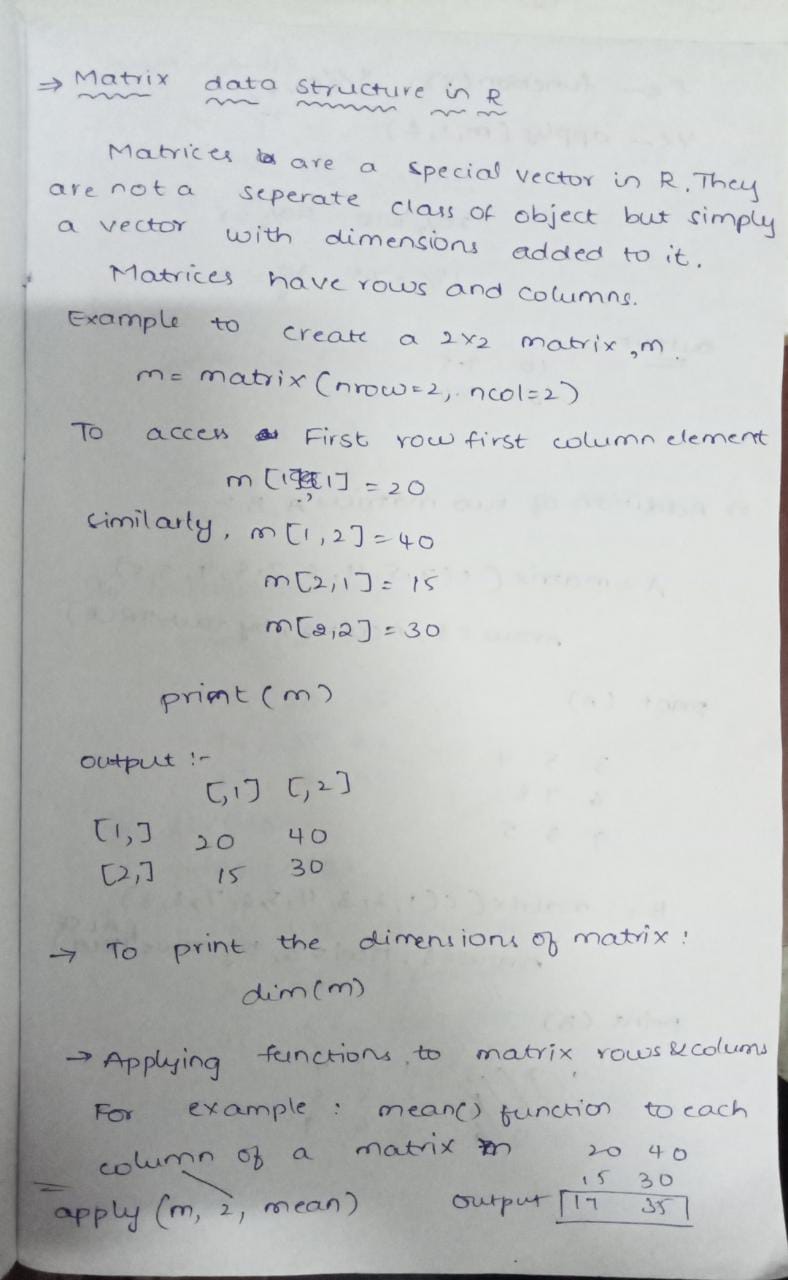 ⇒ Matrix data structure in R
Matrices are a special vector in R. They
are not a seperate class of object but simply
a vector with dimensions added to it.
Matrices have rows and columns.
Example to create a 2x2 matrix, m.
m = matrix (nrow=2, ncol=2)
To access First row first column element
m [1,1] = 20
similarly, m[1,2] = 40
m[2,1] = 15
m[2,2] = 30
print (m)
output :-
[,1] [,2]
[1,] 20 40
[2,] 15 30
→ To print the dimensions of matrix :
dim(m)
→ Applying functions to matrix rows & colums
For example : mean() function to each
column of a matrix m 20 40
15 30
apply (m, 2, mean) output 17 35